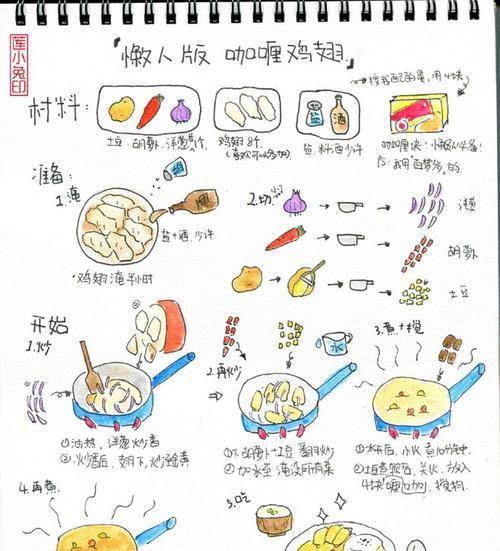 莲小兔印
懒人版 咖喱鸡翅
按我自己的量，用4块
材料：
盐
酒
土豆、胡萝卜、洋葱
鸡翅8个
(喜欢可以多加)
盐、料酒少许
咖喱块！懒人必备！
PS：我用"百梦多"的
准备：
1.腌
盐
酒
盐+酒，少许
鸡翅腌半小时
2.切
洋葱
胡萝卜
土豆
开始
1.炒
①油热，洋葱炒香
②炒香后，翅下，炒金黄
2.再炒
水
①下胡萝卜+土豆 翻炒
②加水至 淹没所有菜
3.煮+搅
①水开后，小火煮10分钟
②土豆煮软后，关火，放入
4块咖喱，搅拌
4.再煮
5.吃